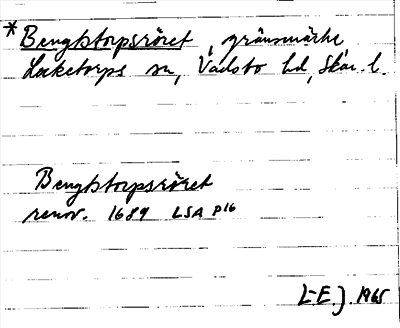 *Bengtstorpsröret, gränsmärke
Locketorps sn, Vadsbo hd, Skar. l.
Bengtstorpsröret
renov. 1689 LSA P16
L-E.J. 1965